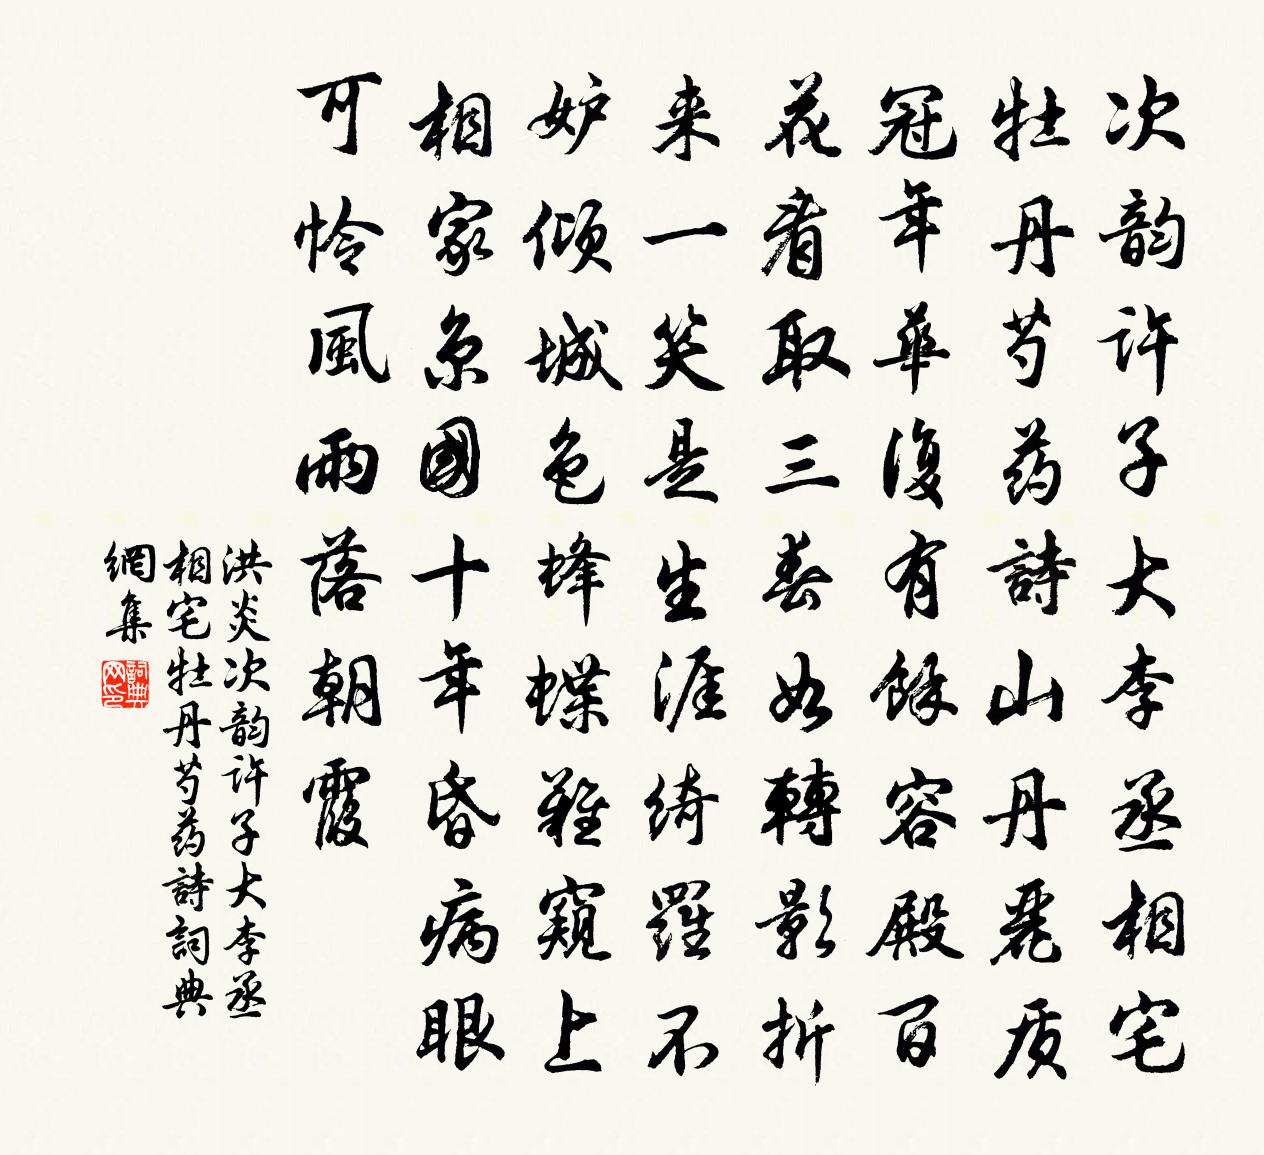 次韵许子大李丞相宅
牡丹芍药詩山丹麗质
冠年華復有餘容殿百
花看取三春如轉影折
来一笑是生涯绮羅不
妒倾城色蜂蝶難窺上
相家京國十年昏病眼
可怜風雨落朝霞
洪炎次韵许子大李丞
相宅牡丹芍药詩詞典
網集
詞典网印